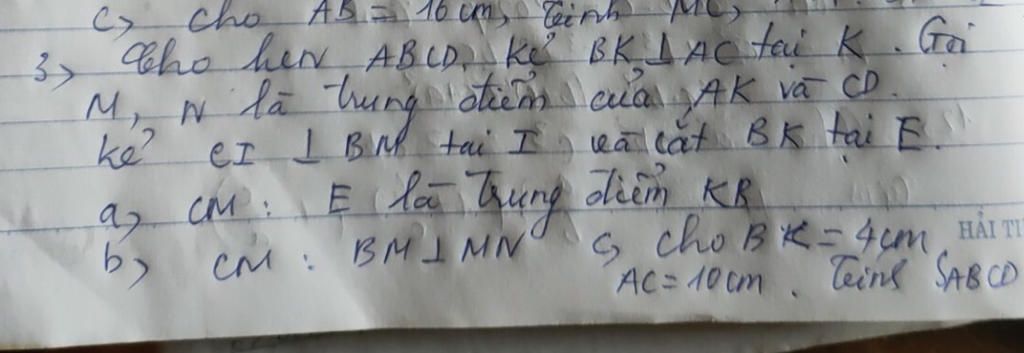 c, cho AB = 16 cm, Tính MC,
3, Cho hcn ABCD, kẻ BK ⊥ AC tại K. Gọi
M, N là trung điểm của AK và CD.
kẻ CI ⊥ BM tại I và cắt BK tại E.
a, CM: E là trung điểm KB
b, CM: BM ⊥ MN c, cho BK = 4cm
AC = 10 cm. Tính SABCD
HẢI TI